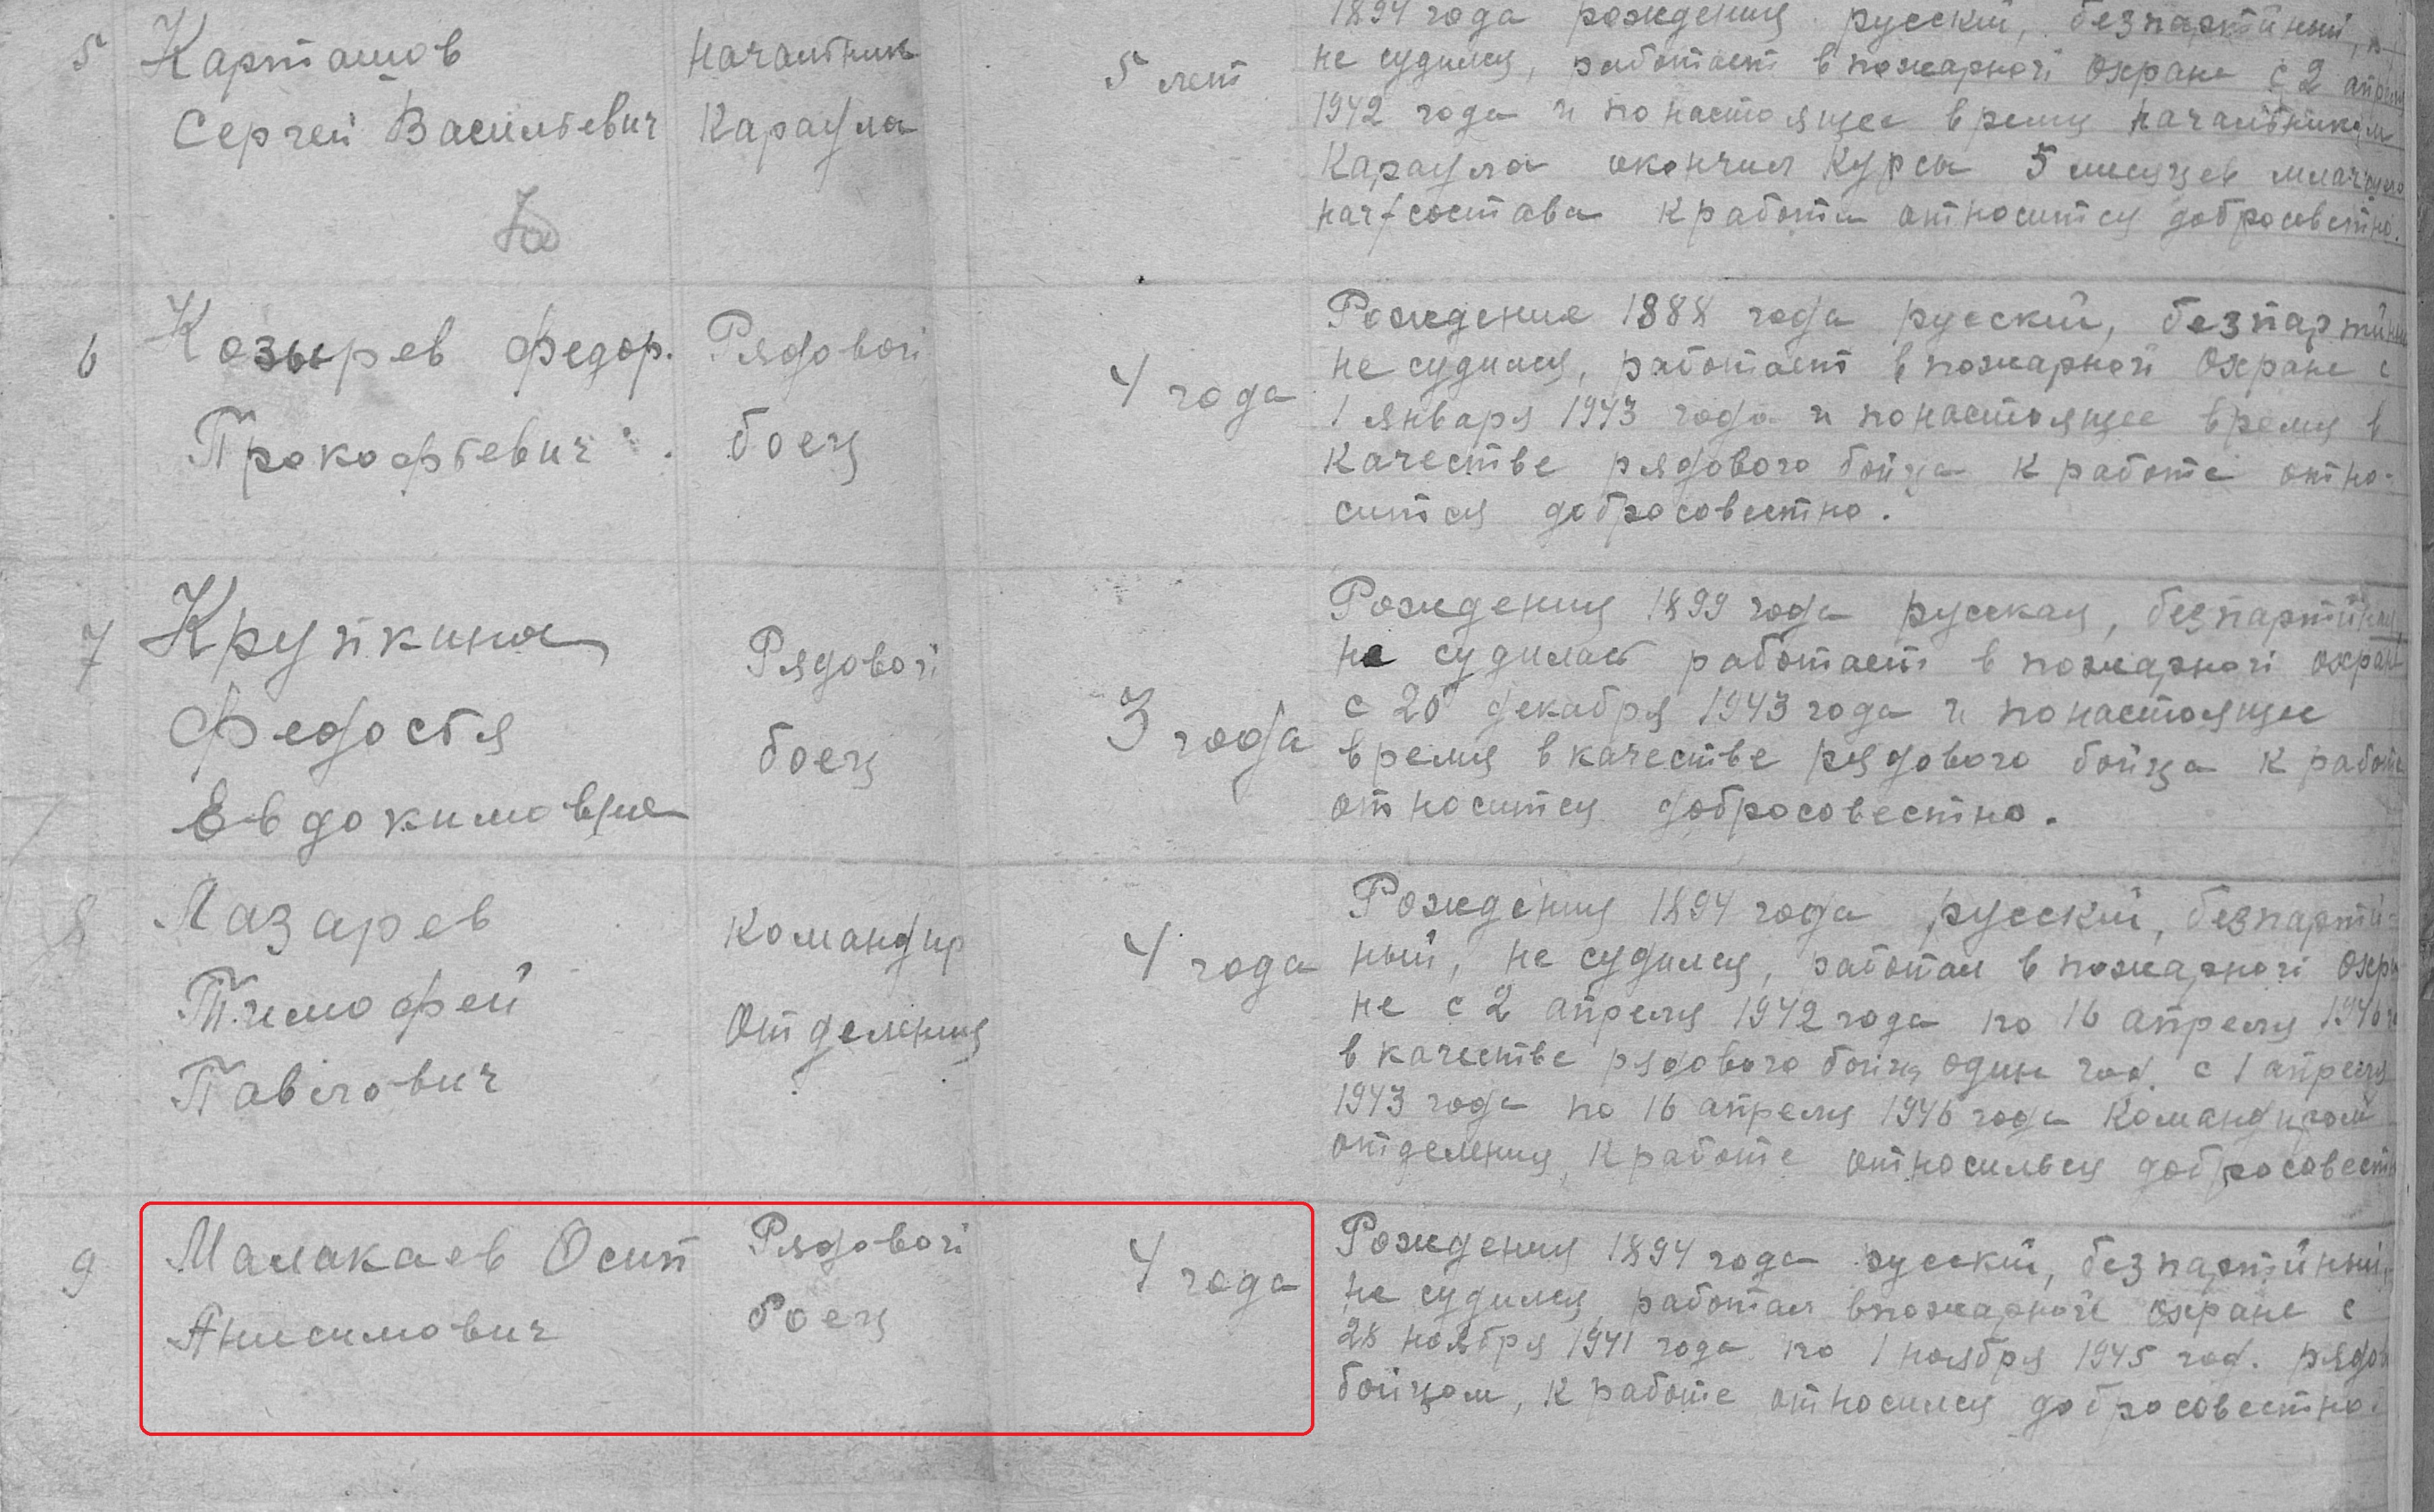 5 Карташов
Сергей Васильевич
начальник
Караула
5 лет
1894 года рождения русский, безпартийный,
не судился, работает в пожарной охране с 2
1942 года и по настоящее время начальником
Караула окончил курсы 5 месяцев
нач/состава к работы относится добросовестно.
6 Козырев Федор.
Прокофьевич
Рядовой
боец
4 года
Рождение 1888 года русский, безпартийный
не судился, работает в пожарной охране с
1 января 1943 года и по настоящее время в
качестве рядового бойца к работе отно-
сится добросовестно.
7 Крупкина
Федосья
Евдокимовна
Рядовой
боец
3 года
Рождения 1899 года русская, безпартийная,
не судилась работает в пожарной охране
с 20 декабря 1943 года и по настоящее
время в качестве рядового бойца к работе
относится добросовестно.
8 Лазарев
Тимофей
Павлович
Командир
отделения
4 года
Рождения 1894 года русский, безпартий-
ный, не судился, работал в пожарной охра
не с 2 апреля 1942 года по 16 апреля 1946
в качестве рядового бойца один год. с 1 апреля
1943 года по 16 апреля 1946 года командиром
отделения, к работе относилься добросовестн
9 Малакаев Осип
Анисимович
Рядовой
боец
4 года
Рождения 1894 года русский, безпартийный,
не судился работал в пожарной охране с
28 ноября 1941 года по 1 ноября 1945 год. рядов
бойцом, к работе относился добросовестно.